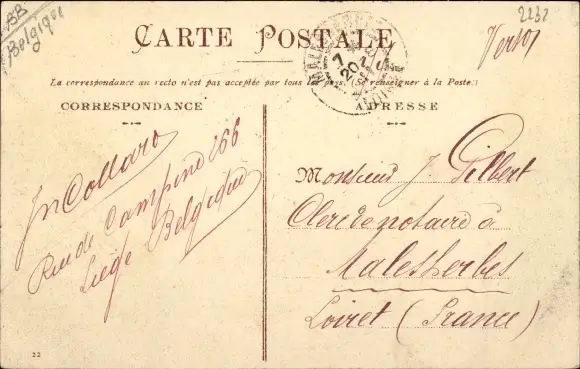 BB
Belgique
2232
CARTE POSTALE
La correspondance au recto n'est pas acceptée par tous les pays. (Se renseigner à la Poste.)
CORRESPONDANCE
ADRESSE
Jn Collard
Rue de Campine 266
Liège Belgique
Monsieur J. Gilbert
Clerc de notaire à
Malesherbes
Loiret (France)
22